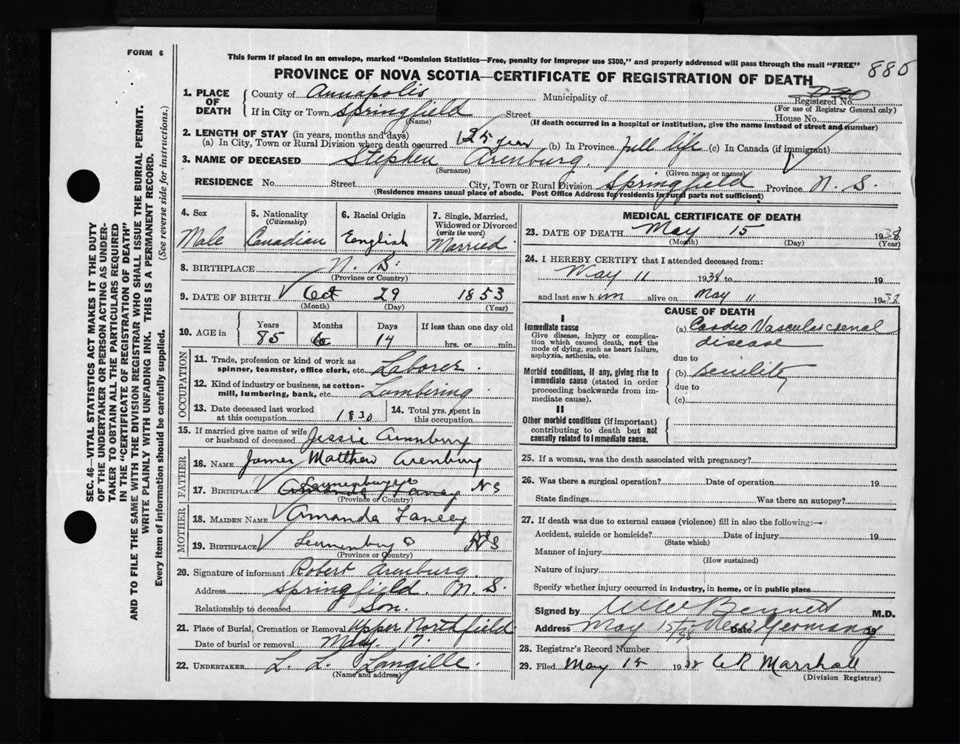 FORM 6
This form if placed in an envelope, marked "Dominion Statistics—Free, penalty for improper use $300," and properly addressed will pass through the mail "FREE"
880
PROVINCE OF NOVA SCOTIA—CERTIFICATE OF REGISTRATION OF DEATH
Registered No.
(For use of Registrar General only)
1. PLACE OF DEATH
County of Annapolis Municipality of
If in City or Town Springfield Street House No.
(Name) (If death occurred in a hospital or institution, give the name instead of street and number)
2. LENGTH OF STAY (in years, months and days)
(a) In City, Town or Rural Division where death occurred 25 year (b) In Province full life (c) In Canada (if immigrant)
3. NAME OF DECEASED Stephen Arenburg
(Surname) (Given name or names)
RESIDENCE No. Street City, Town or Rural Division Springfield Province N. S.
(Residence means usual place of abode. Post Office Address for residents in rural parts not sufficient)
SEC. 46—VITAL STATISTICS ACT MAKES IT THE DUTY
OF THE UNDERTAKER OR PERSON ACTING AS UNDER-
TAKER TO OBTAIN ALL THE PARTICULARS REQUIRED
IN THE "CERTIFICATE OF REGISTRATION OF DEATH"
AND TO FILE THE SAME WITH THE DIVISION REGISTRAR WHO SHALL ISSUE THE BURIAL PERMIT.
WRITE PLAINLY WITH UNFADING INK. THIS IS A PERMANENT RECORD.
Every item of information should be carefully supplied. (See reverse side for instructions.)
4. Sex
Male
5. Nationality
(Citizenship)
Canadian
6. Racial Origin
English
7. Single, Married,
Widowed or Divorced
(write the word)
Married
8. BIRTHPLACE N. B.
(Province or Country)
9. DATE OF BIRTH Oct 29 1853
(Month) (Day) (Year)
10. AGE in
Years Months Days If less than one day old
85 6 14 hrs. or min.
OCCUPATION
11. Trade, profession or kind of work as
spinner, teamster, office clerk, etc. Laborer
12. Kind of industry or business, as cotton-
mill, lumbering, bank, etc. Lumbering
13. Date deceased last worked
at this occupation 1830
14. Total yrs. spent in
this occupation
15. If married give name of wife
or husband of deceased Jessie Arenburg
FATHER
16. NAME James Matthew Arenburg
17. BIRTHPLACE Lunenburg Co NS
(Province or Country)
MOTHER
18. MAIDEN NAME Amanda
19. BIRTHPLACE Lunenburg Co NS
(Province or Country)
20. Signature of informant Robert Arenburg
Address Springfield. N. S.
Relationship to deceased Son.
21. Place of Burial, Cremation or Removal Upper Northfield
Date of burial or removal May 17.
22. UNDERTAKER L. L. Langille.
(Name and address)
MEDICAL CERTIFICATE OF DEATH
23. DATE OF DEATH May 15 1938
(Month) (Day) (Year)
24. I HEREBY CERTIFY that I attended deceased from:
May 11 1938 to 19
and last saw him alive on May 11 1938
CAUSE OF DEATH
I
Immediate cause
Give disease, injury or complica-
tion which caused death, not the
mode of dying, such as heart failure,
asphyxia, asthenia, etc.
(a) Cardio Vascular renal
disease
due to
Morbid conditions, if any, giving rise to
immediate cause (stated in order
proceeding backwards from im-
mediate cause).
(b) Senility
due to
(c)
II
Other morbid conditions (if important)
contributing to death but not
causally related to immediate cause.
25. If a woman, was the death associated with pregnancy?
26. Was there a surgical operation? Date of operation 19
State findings Was there an autopsy?
27. If death was due to external causes (violence) fill in also the following:—
Accident, suicide or homicide? Date of injury 19
(State which)
Manner of injury
(How sustained)
Nature of injury
Specify whether injury occurred in industry, in home, or in public place
Signed by Bennett M.D.
Address May 15/38 New Germany Date 19
28. Registrar's Record Number
29. Filed May 18 1938 C R Marshall
(Division Registrar)